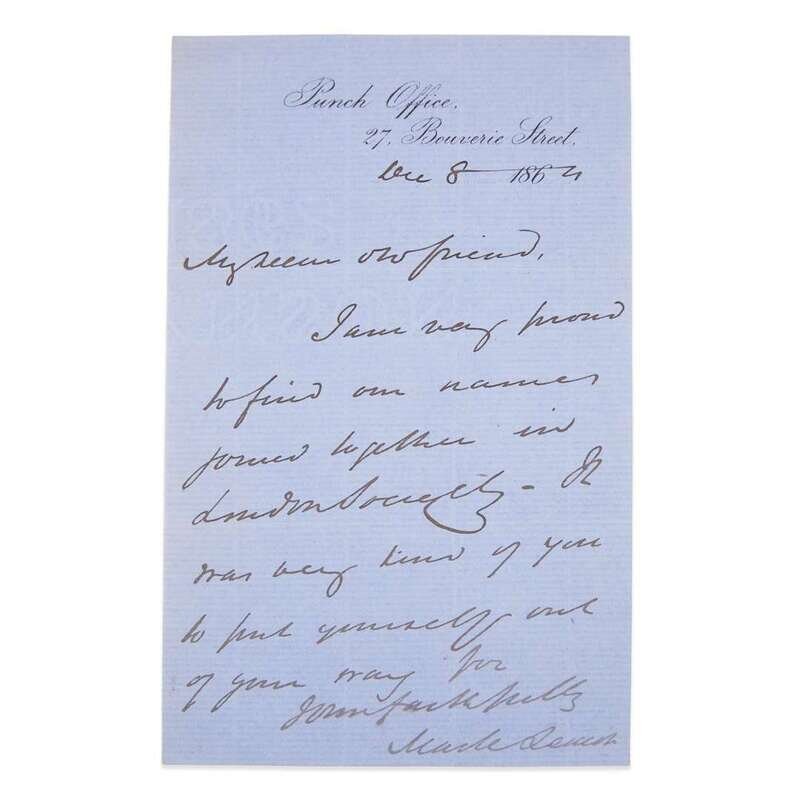 Punch Office.
27, Bouverie Street.
Dec 8 1864
My dear old friend,
I am very proud
to find our names
joined together in
London Society - It
was very kind of you
to put yourself out
of your way for
Yours faithfully
Mark Lemon